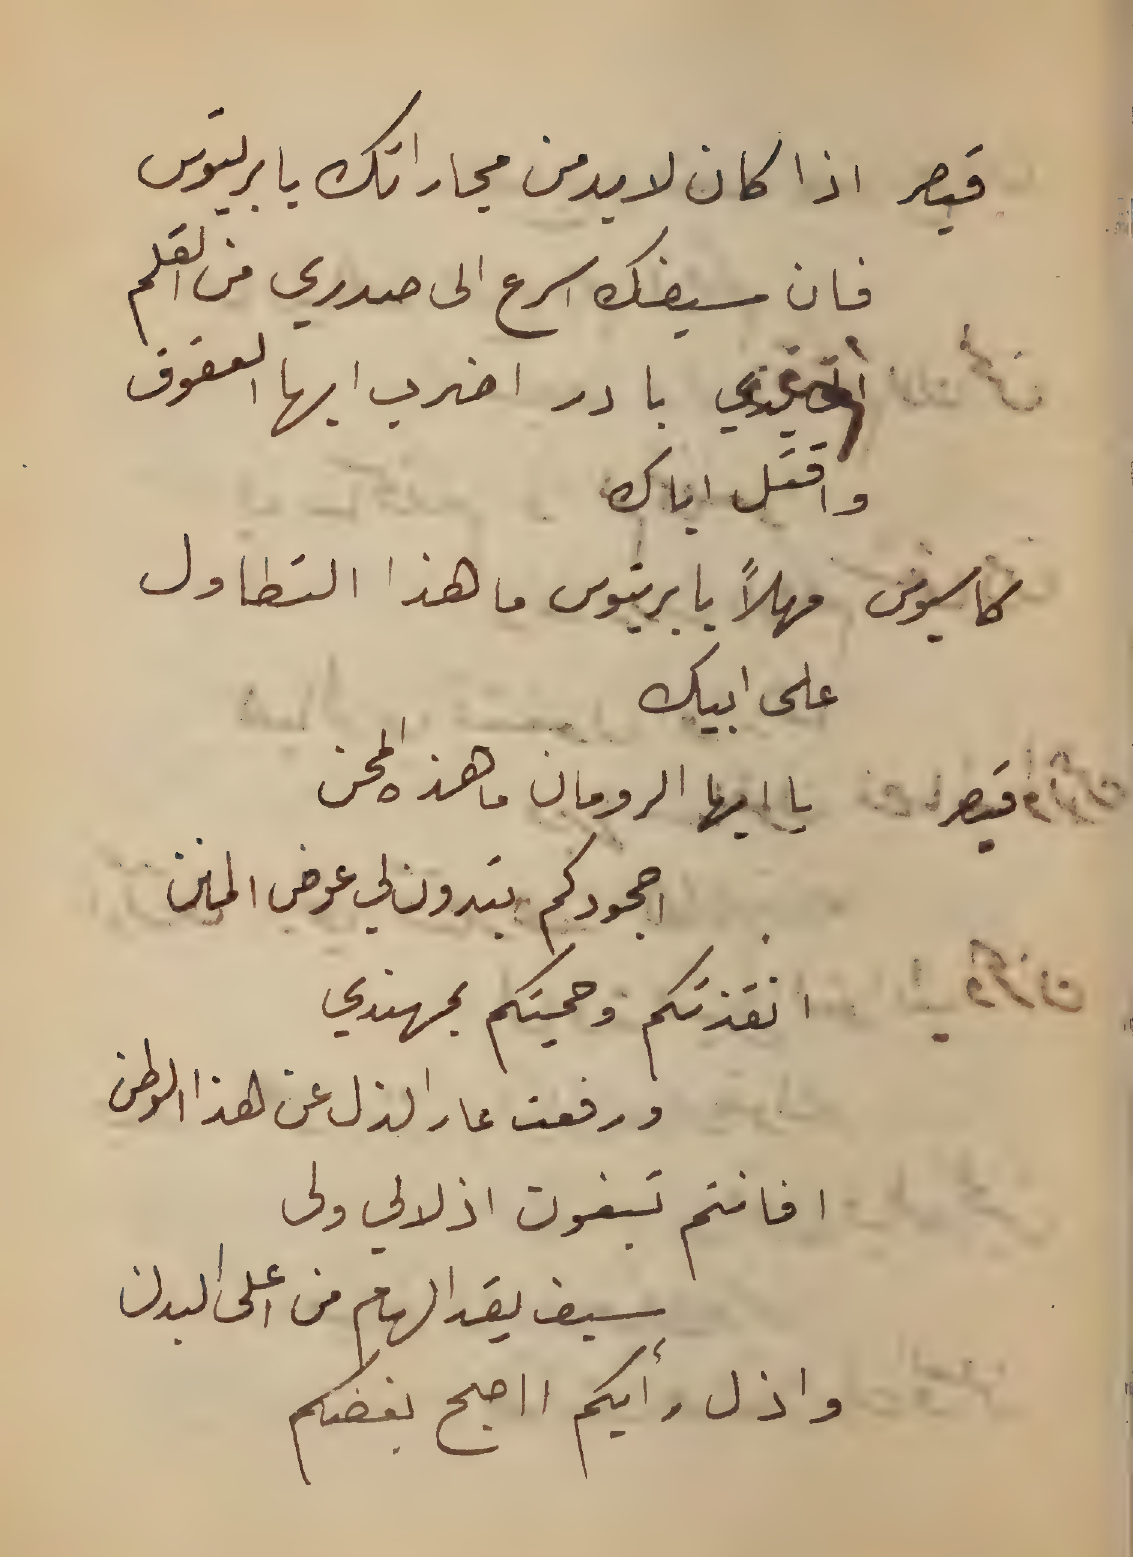 قيصر اذا كان لابد من مجاراتك يا بريتوس
فان سيفك اسرع الى صدري من القلم
بادر اضرب ايها العقوق
واقتل اباك
كاسيوس مهلاً يا بريتوس ما هذا التطاول
على ابيك
قيصر يا ايها الرومان ما هذه المحن
اجحودكم تبدون لي عوض المنن
انقذتكم وحميتكم بمهندي
ورفعت عار الذل عن هذا الوطن
افانتم تبغون اذلالي ولى
سيف يقد الهام من اعلى البدن
واذل رأيكم ااصبح بغضكم